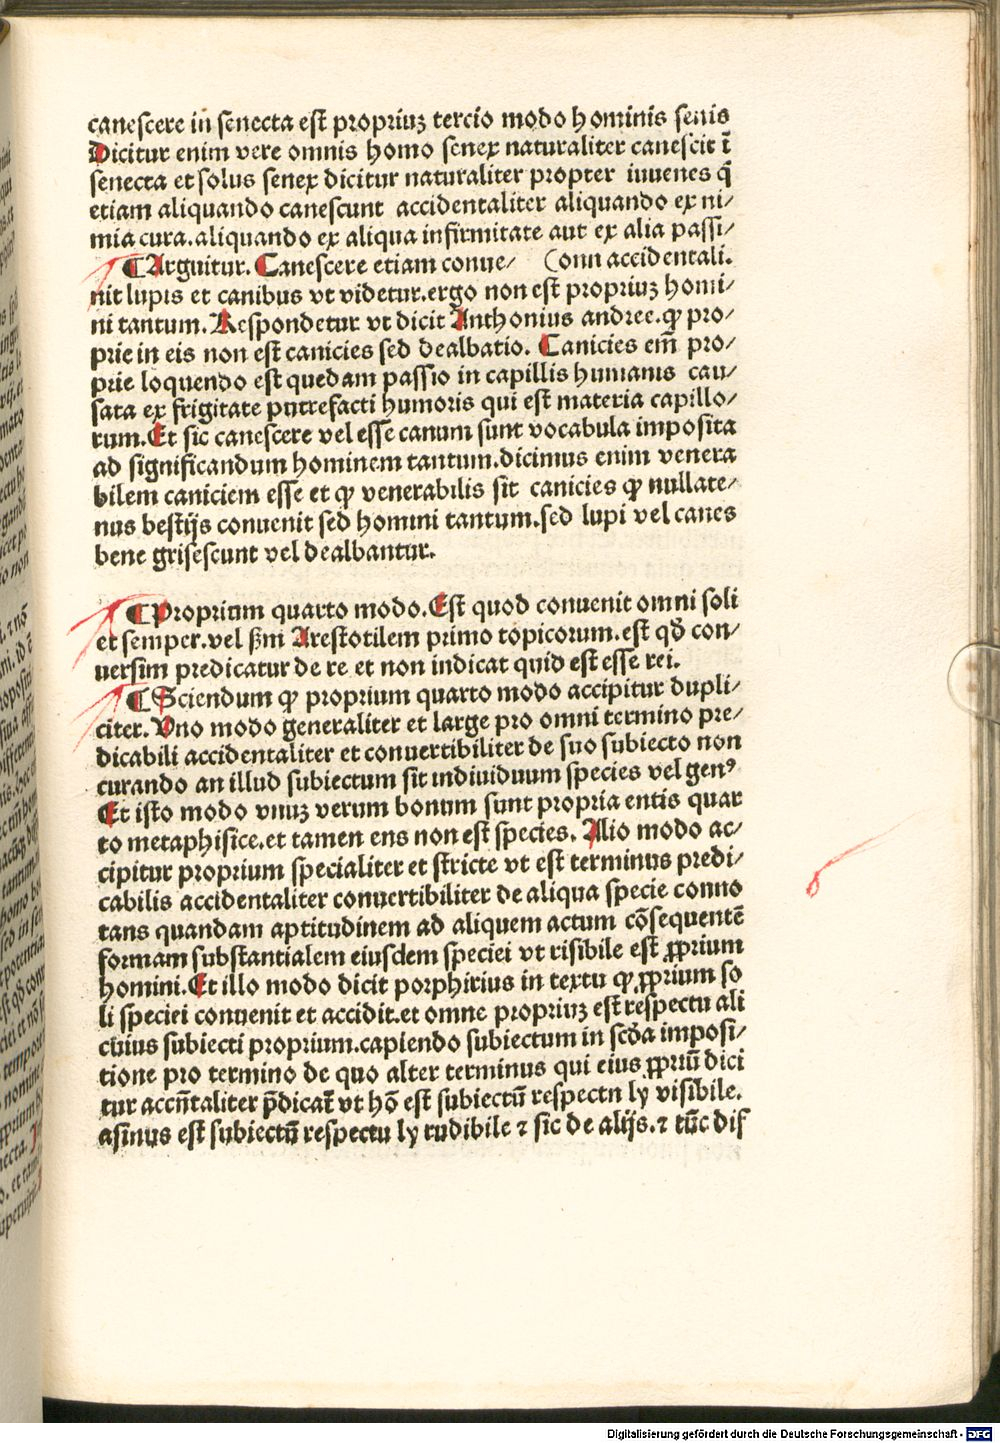 canescere in senecta est propriuꝫ tercio modo hominis senis
Dicitur enim vere omnis homo senex naturaliter canescit ī
senecta et solus senex dicitur naturaliter propter iuuenes q̄
etiam aliquando canescunt accidentaliter aliquando ex ni/
mia cura.aliquando ex aliqua infirmitate aut ex alia passi/
¶ Arguitur. Canescere etiam conue/ (onn accidentali.
nit lupis et canibus vt videtur.ergo non est propriuꝫ homi/
ni tantum. Respondetur vt dicit Anthonius andree.ꝙ pro/
prie in eis non est canicies sed dealbatio. Canicies em̄ pro/
prie loquendo est quedam passio in capillis humanis cau/
sata ex frigitate putrefacti humoris qui est materia capillo/
rum.Et sic canescere vel esse canum sunt vocabula imposita
ad significandum hominem tantum.dicimus enim venera
bilem caniciem esse et ꝙ venerabilis sit canicies ꝙ nullate/
nus bestijs conuenit sed homini tantum.sed lupi vel canes
bene grisescunt vel dealbantur.
¶ Proprium quarto modo.Est quod conuenit omni soli
et semper.vel ẞm Arestotilem primo topicorum.est qđ con/
uersim predicatur de re et non indicat quid est esse rei.
¶ Sciendum ꝙ proprium quarto modo accipitur dupli/
citer. Vno modo generaliter et large pro omni termino pre/
dicabili accidentaliter et conuertibiliter de suo subiecto non
curando an illud subiectum sit indiuiduum species vel genꝰ
Et isto modo vnuꝫ verum bonum sunt propria entis quar
to metaphisice.et tamen ens non est species. Alio modo ac/
cipitur proprium specialiter et stricte vt est terminus predi/
cabilis accidentaliter conuertibiliter de aliqua specie conno
tans quandam aptitudinem ad aliquem actum cōsequentē
formam substantialem eiusdem speciei vt risibile est ꝓprium
homini.Et illo modo dicit porphirius in textu ꝙ ꝓprium so
li speciei conuenit et accidit.et omne propriuꝫ est respectu ali
cuius subiecti proprium.capiendo subiectum in scđa imposi/
tione pro termino de quo alter terminus qui eius ꝓpriū dici
tur accn̄taliter p̄dicat̄ vt hō est subiectū respectu ly visibile.
asinus est subiectū respectu ly rudibile ⁊ sic de alijs.⁊ tūc dif
Digitalisierung gefördert durch die Deutsche Forschungsgemeinschaft - DFG